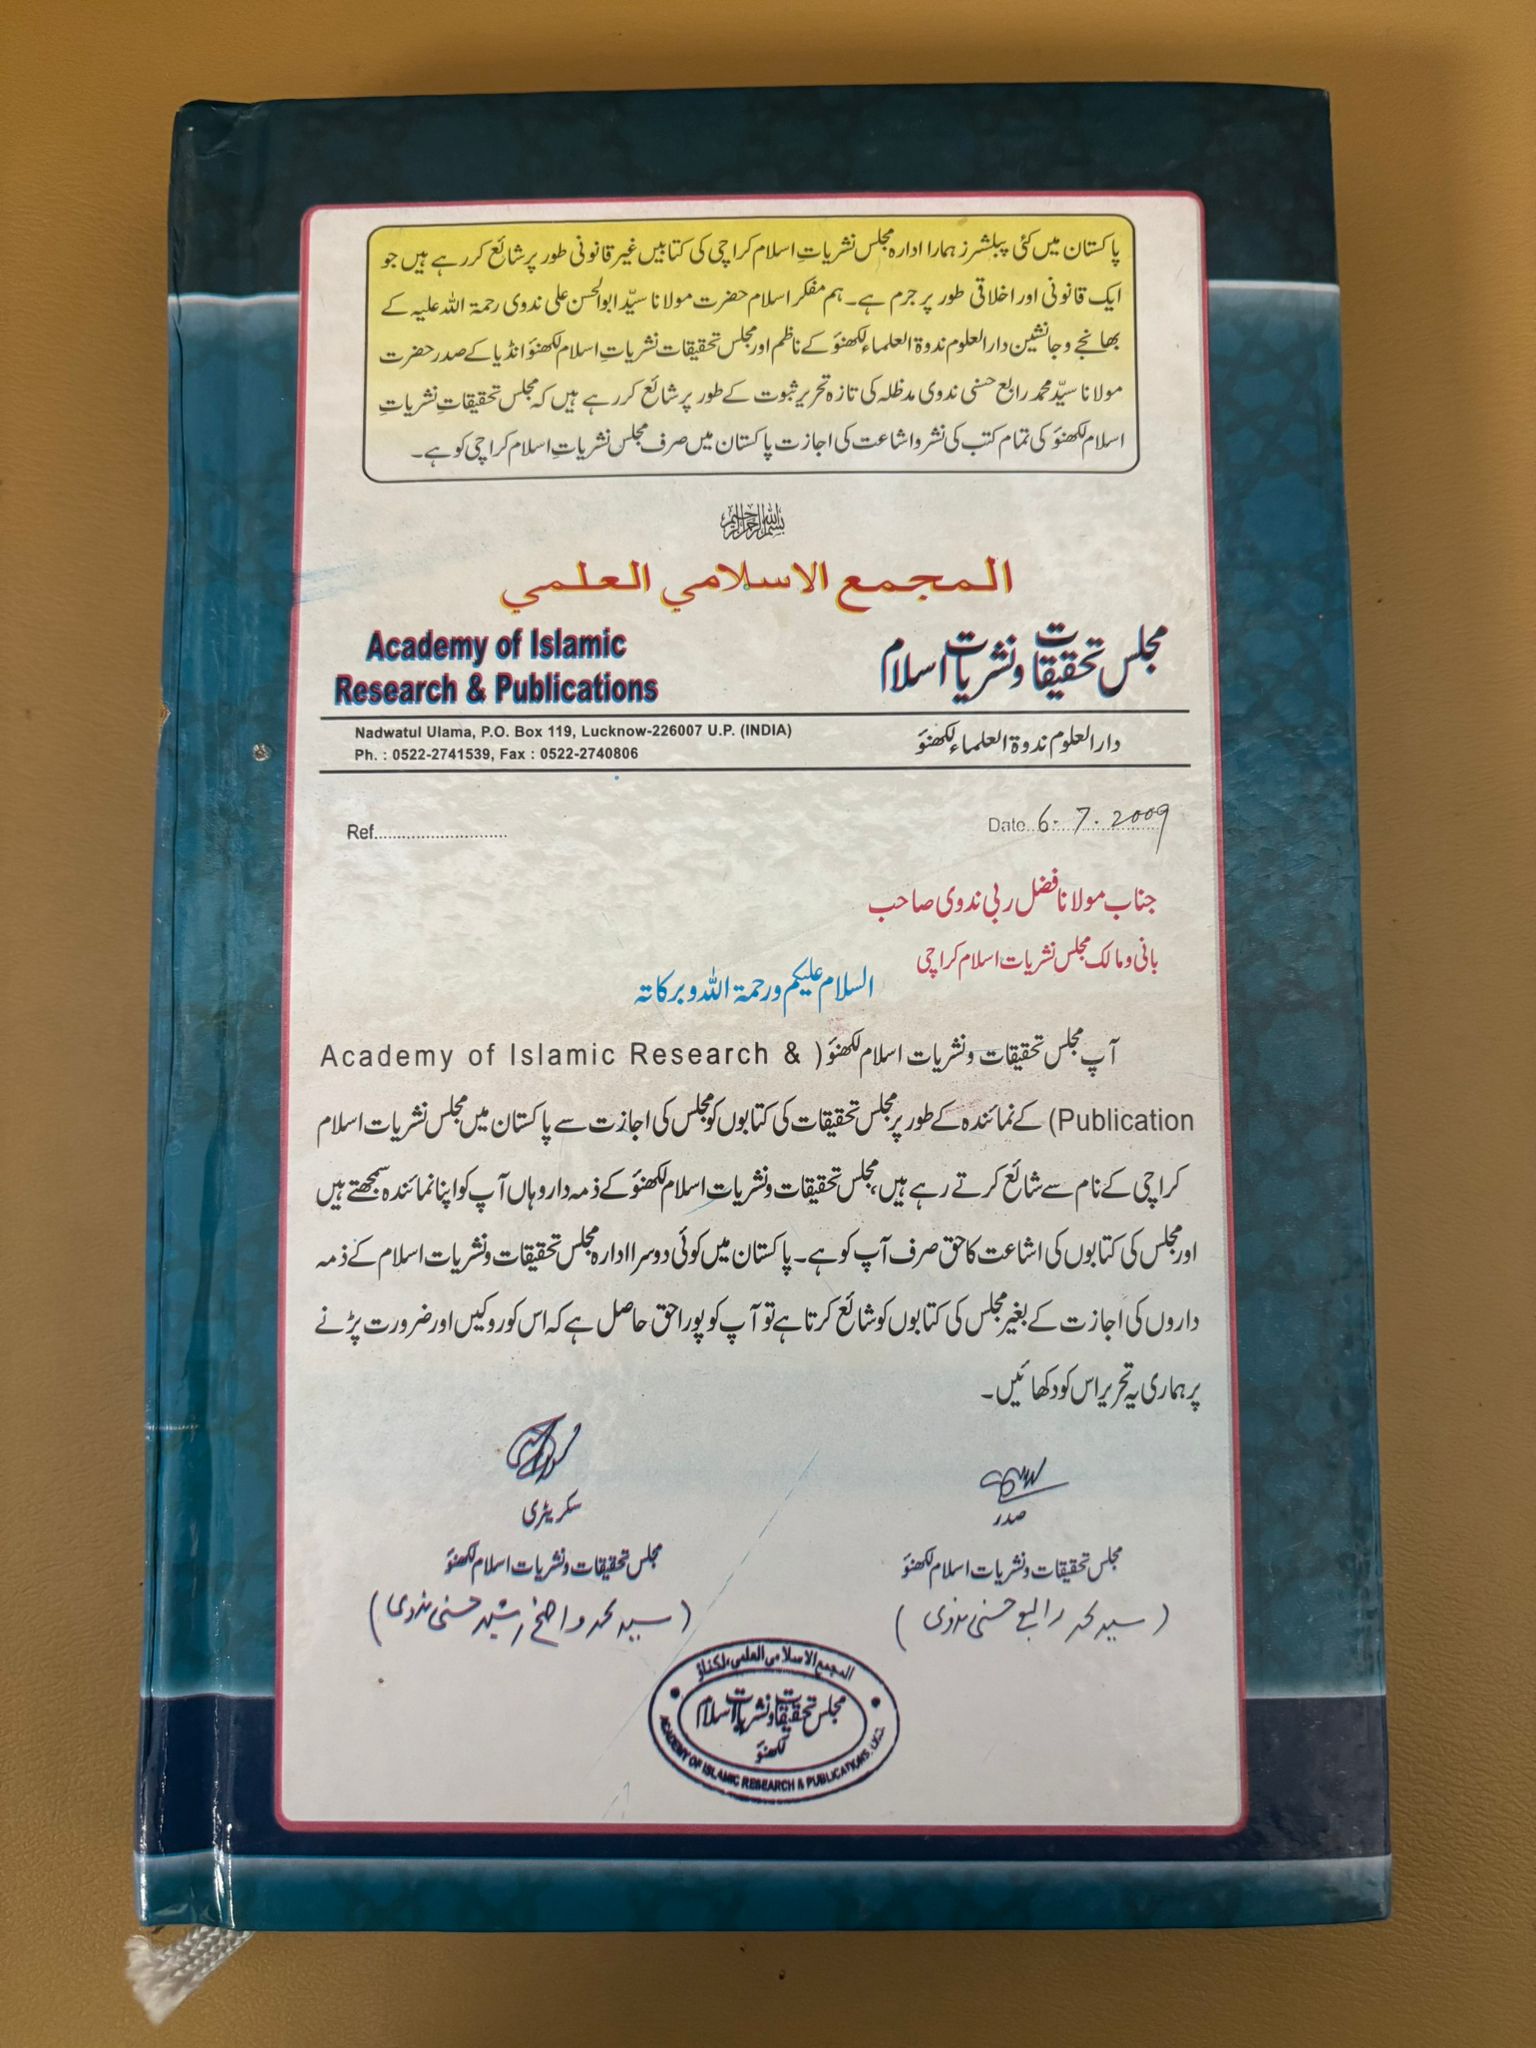 پاکستان میں کئی پبلشرز ہمارا ادارہ مجلس نشریاتِ اسلام کراچی کی کتابیں غیر قانونی طور پر شائع کر رہے ہیں جو
ایک قانونی اور اخلاقی طور پر جرم ہے۔ ہم مفکر اسلام حضرت مولانا سیّد ابوالحسن علی ندوی رحمۃ اللہ علیہ کے
بھانجے و جانشین دارالعلوم ندوۃ العلماء لکھنؤ کے ناظم اور مجلس تحقیقات نشریاتِ اسلام لکھنؤ انڈیا کے صدر حضرت
مولانا سیّد محمد رابع حسنی ندوی مدظلہ کی تازہ تحریر ثبوت کے طور پر شائع کر رہے ہیں کہ مجلس تحقیقاتِ نشریاتِ
اسلام لکھنؤ کی تمام کتب کی نشر و اشاعت کی اجازت پاکستان میں صرف مجلس نشریاتِ اسلام کراچی کو ہے۔
بسم اللہ الرحمن الرحیم
المجمع الاسلامي العلمي
Academy of Islamic
Research & Publications
مجلس تحقیقات ونشریات اسلام
Nadwatul Ulama, P.O. Box 119, Lucknow-226007 U.P. (INDIA)
Ph. : 0522-2741539, Fax : 0522-2740806
دارالعلوم ندوۃ العلماء لکھنؤ
Ref............................
Date..6.7.2009
جناب مولانا فضل ربی ندوی صاحب
بانی و مالک مجلس نشریات اسلام کراچی
السلام علیکم ورحمۃ اللہ وبرکاتہ
آپ مجلس تحقیقات ونشریات اسلام لکھنؤ (Academy of Islamic Research &
Publication) کے نمائندہ کے طور پر مجلس تحقیقات کی کتابوں کو مجلس کی اجازت سے پاکستان میں مجلس نشریات اسلام
کراچی کے نام سے شائع کرتے رہے ہیں، مجلس تحقیقات ونشریات اسلام لکھنؤ کے ذمہ دار وہاں آپ کو اپنا نمائندہ سمجھتے ہیں
اور مجلس کی کتابوں کی اشاعت کا حق صرف آپ کو ہے۔ پاکستان میں کوئی دوسرا ادارہ مجلس تحقیقات ونشریات اسلام کے ذمہ
داروں کی اجازت کے بغیر مجلس کی کتابوں کو شائع کرتا ہے تو آپ کو پورا حق حاصل ہے کہ اس کو روکیں اور ضرورت پڑنے
پر ہماری یہ تحریر اس کو دکھائیں۔
صدر
مجلس تحقیقات ونشریات اسلام لکھنؤ
(سید محمد رابع حسنی ندوی)
سکریٹری
مجلس تحقیقات ونشریات اسلام لکھنؤ
(سید محمد واضح رشید حسنی ندوی)
المجمع الاسلامي العلمي، لكناؤ
مجلس تحقیقات ونشریات اسلام
لکھنؤ
ACADEMY OF ISLAMIC RESEARCH & PUBLICATIONS,